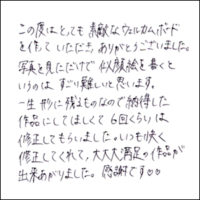 この度はとっても素敵なウェルカムボード
を作っていただき、ありがとうございました。
写真を見ただけで似顔絵を書くと
いうのはすごく難しいと思います。
一生形に残るものなので納得した
作品にしてほしくて6回くらいは
修正してもらいました。いつも快く
修正してくれて、大大大満足の作品が
出来あがりました。感謝です♡♡